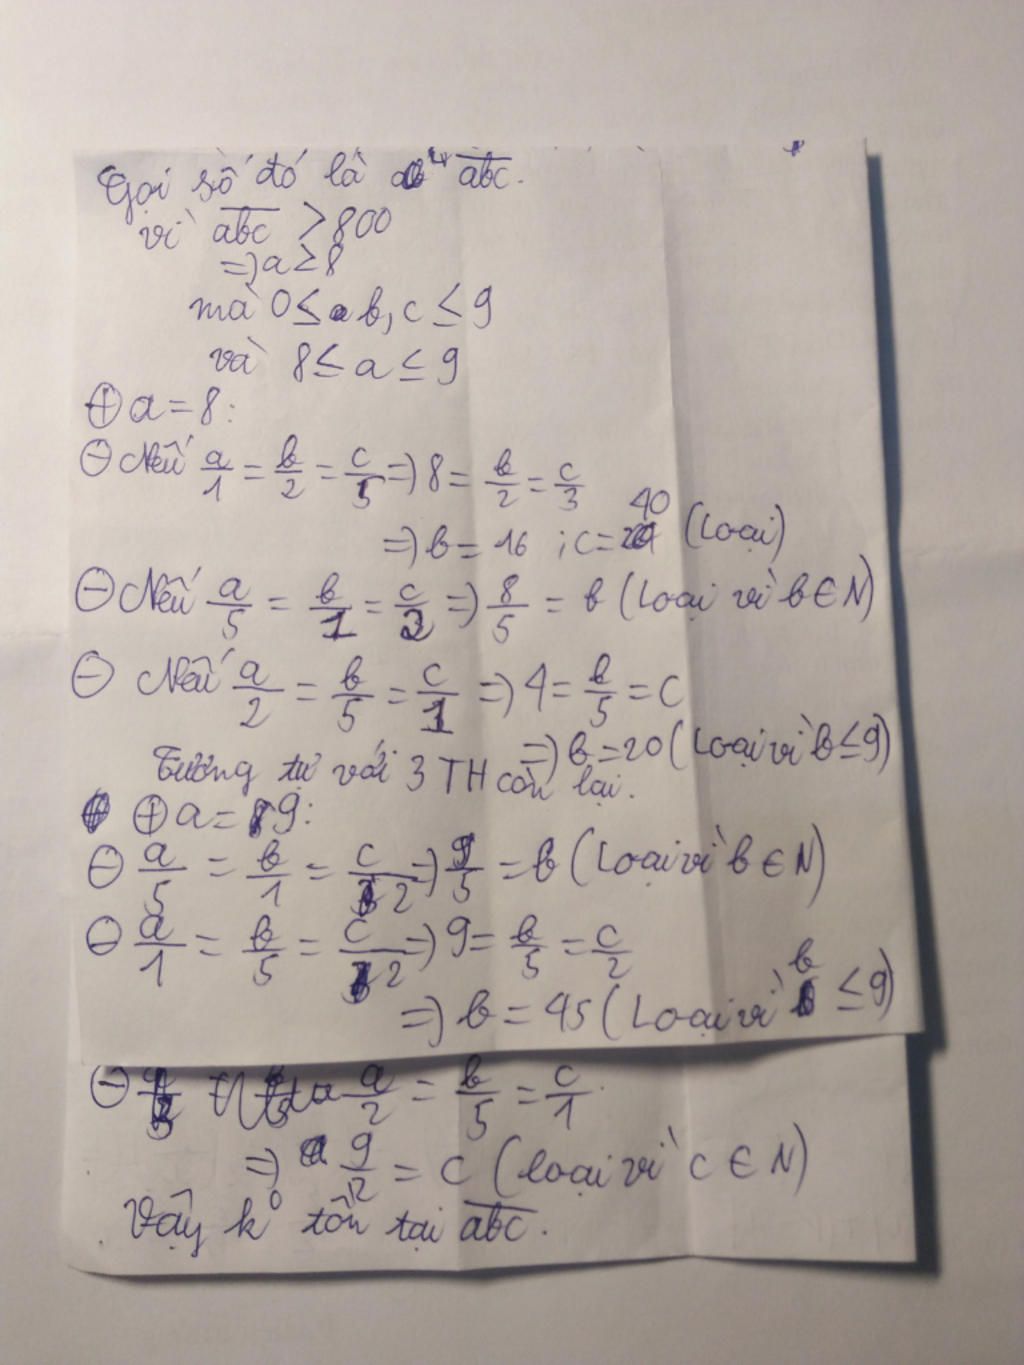 Gọi số đó là abc.
vì abc > 800
=> a ≥ 8
mà 0 ≤ b, c ≤ 9
và 8 ≤ a ≤ 9
⊕ a = 8:
⊖ Nếu a/1 = b/2 = c/5 => 8 = b/2 = c/3
=> b = 16 ; c = 40 (Loại)
⊖ Nếu a/5 = b/1 = c/2 => 8/5 = b (Loại vì b ∈ N)
⊖ Nếu a/2 = b/5 = c/1 => 4 = b/5 = c
=> b = 20 (Loại vì b ≤ 9)
Tương tự với 3 TH còn lại.
⊕ a = 9:
⊖ a/5 = b/1 = c/2 => 9/5 = b (Loại vì b ∈ N)
⊖ a/1 = b/5 = c/2 => 9 = b/5 = c/2
=> b = 45 (Loại vì b ≤ 9)
⊖ a/2 = b/5 = c/1.
=> 9/2 = c (loại vì c ∈ N)
Vậy k° tồn tại abc.